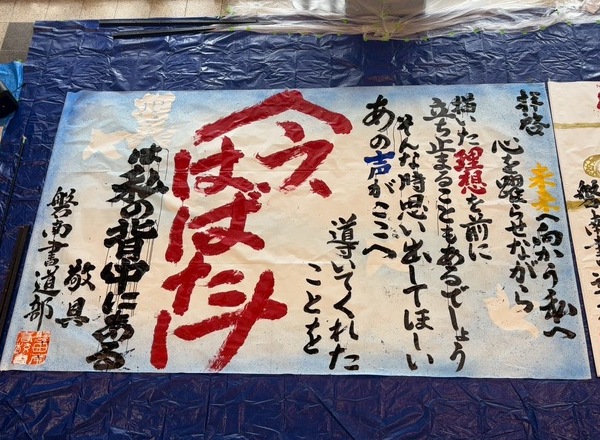 拝啓
未来へ向かう私へ
心を躍らせながら
描いた理想を前に
立ち止まることもあるでしょう
そんな時思い出してほしい
あの声がここへ
導いてくれた
ことを
今、
はばたけ
は私の背中にある
敬具
磐南書道部